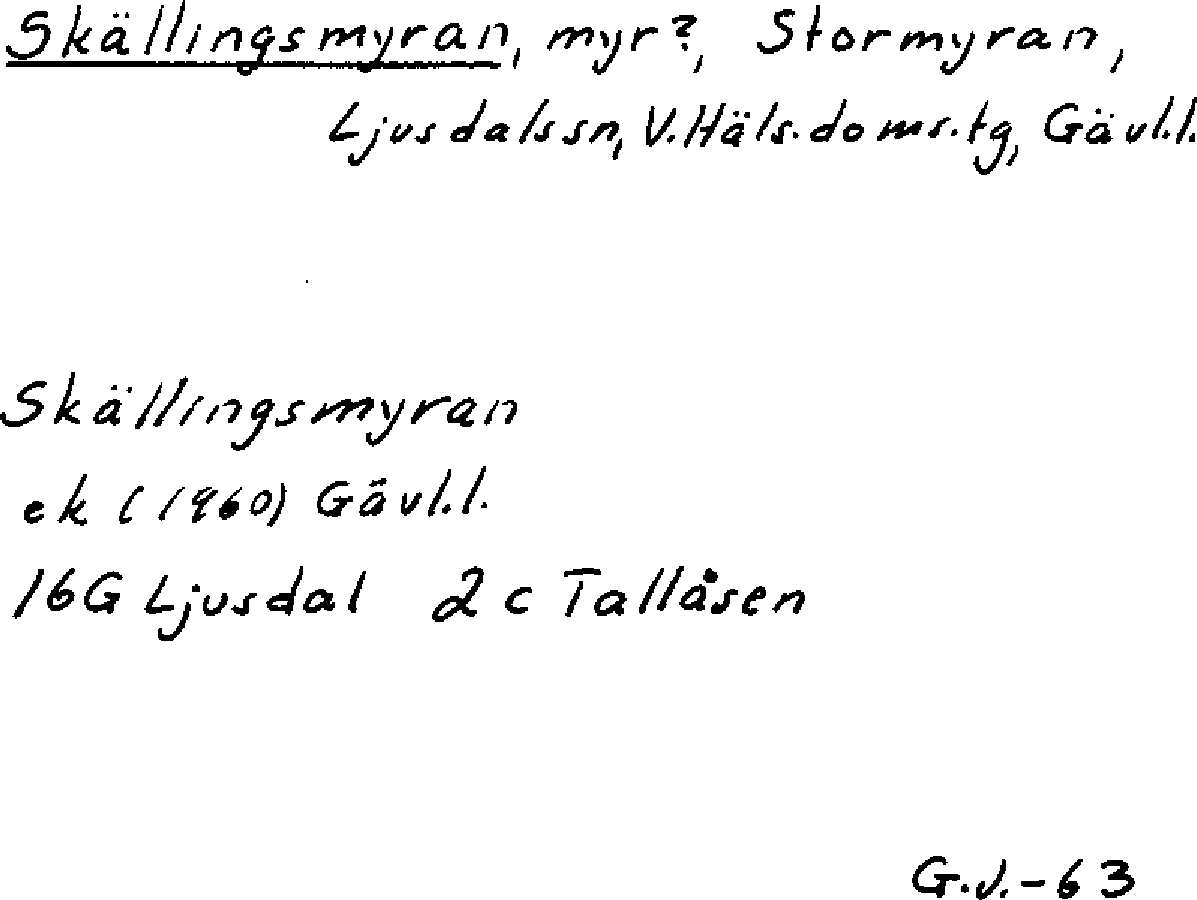 Skällingsmyran, myr?, Stormyran,
Ljusdalssn, V.Häls.doms.tg, Gävl.l.
Skällingsmyran
ek (1960) Gävl.l.
16G Ljusdal 2c Tallåsen
G.J.-63